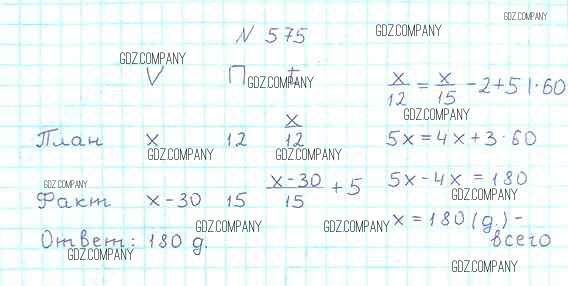 GDZ.COMPANY
N 575
GDZ.COMPANY
GDZ.COMPANY
V П t
GDZ.COMPANY
x/12 = x/15 - 2 + 5 | · 60
GDZ.COMPANY
План x 12 x/12
5x = 4x + 3 · 60
GDZ.COMPANY GDZ.COMPANY
GDZ.COMPANY
Факт x - 30 15 x - 30/15 + 5
5x - 4x = 180
GDZ.COMPANY
GDZ.COMPANY GDZ.COMPANY
x = 180 (д.) -
всего
Ответ: 180 д.
GDZ.COMPANY
GDZ.COMPANY